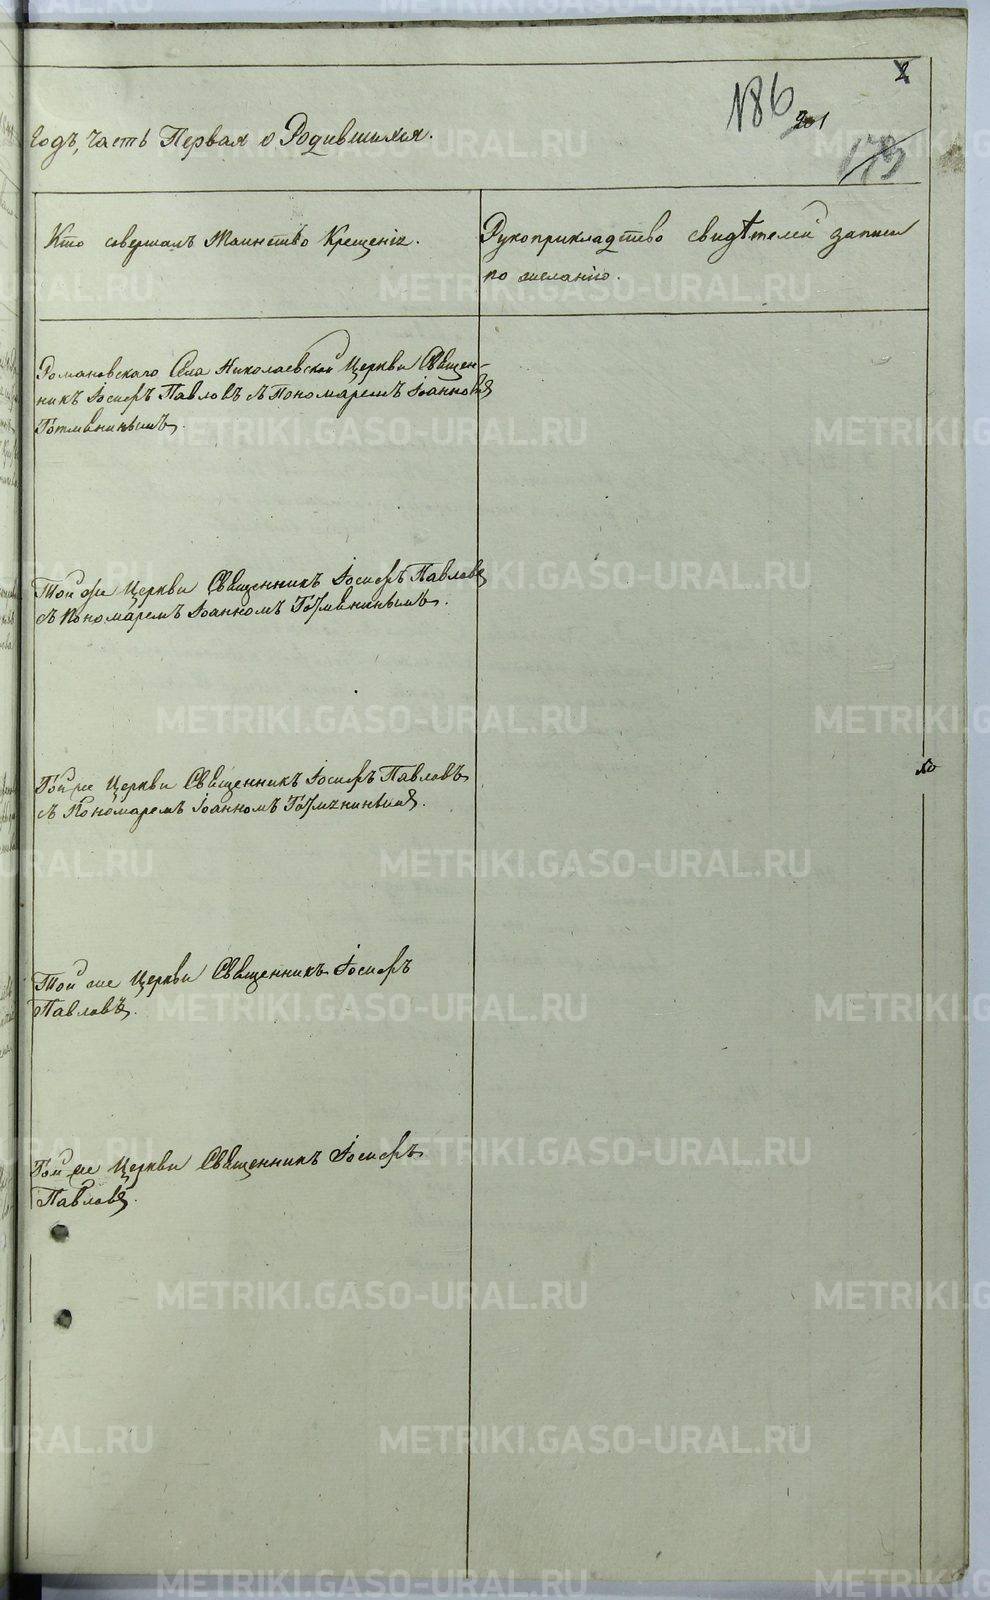 2
186
201
173
годъ, Часть Первая о Родившихся.
Кто совершалъ Таинство Крещенія.
Рукоприкладство свидѣтелей записи
по желанію.
Романовскаго Села Николаевской Церкви Священ-
никъ Іосифъ Павловъ съ Пономаремъ Іоанномъ
Той же Церкви Священникъ Іосифъ Павловъ
съ Пономаремъ Іоанномъ
Той же Церкви Священникъ Іосифъ Павловъ
съ Пономаремъ Іоанномъ
Той же Церкви Священникъ Іосифъ
Павловъ.
Той же Церкви Священникъ Іосифъ
Павловъ.
METRIKI.GASO-URAL.RU